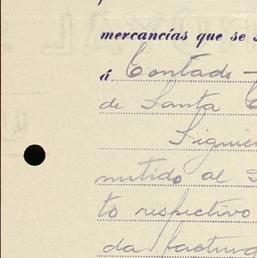 mercancías que se
á Contado -
de Santa
Siguien
mitido al
to respectivo
da factura